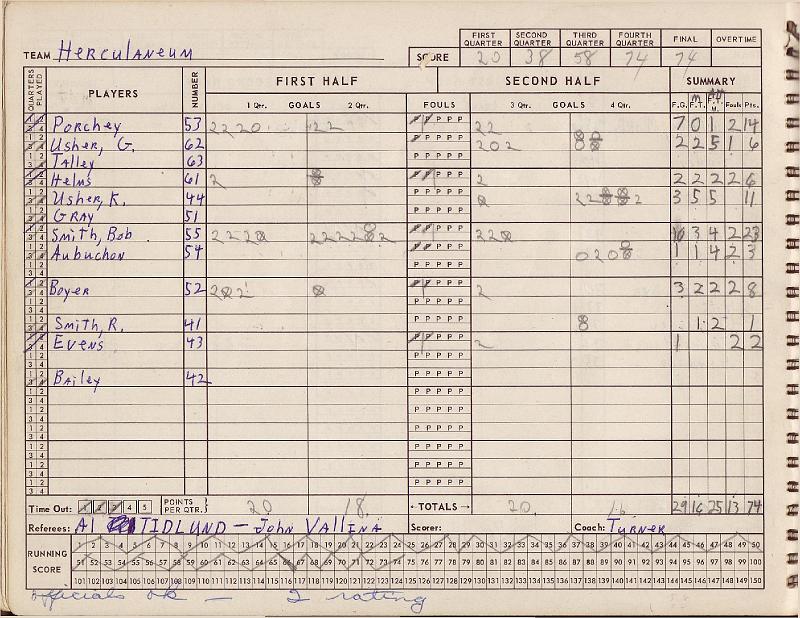 TEAM Herculaneum
SCORE
FIRST QUARTER SECOND QUARTER THIRD QUARTER FOURTH QUARTER FINAL OVERTIME
20 38 58 74 74
QUARTERS PLAYED PLAYERS NUMBER FIRST HALF SECOND HALF SUMMARY
1 Qtr. GOALS 2 Qtr. FOULS 3 Qtr. GOALS 4 Qtr. F.G. F.T. Fouls Pts.
Porchey 53 2220 22 PPPPP 22 7 0 1 2 14
Usher, G. 62 PPPPP 202 2 2 5 1 6
Talley 63 PPPPP
Helms 61 2 PPPPP 2 2 2 2 2 6
Usher, K. 44 PPPPP 3 5 5 11
Gray 51 PPPPP
Smith, Bob 55 PPPPP 10 3 4 2 23
Aubuchon 54 PPPPP 1 1 4 2 3
Boyer 52 PPPPP 2 3 2 2 2 8
Smith, R. 41 PPPPP 1 2 1
Evens 43 PPPPP 2 1 2 2
Bailey 42 PPPPP
Time Out: 1 2 3 4 5 POINTS PER QTR. 20 18 TOTALS 20 16 29 16 25 13 74
Referees: Al TIDLUND - John VALLINA Scorer: Coach: Turner
1 2 3 4 5 6 7 8 9 10 11 12 13 14 15 16 17 18 19 20 21 22 23 24 25 26 27 28 29 30 31 32 33 34 35 36 37 38 39 40 41 42 43 44 45 46 47 48 49 50
RUNNING SCORE 51 52 53 54 55 56 57 58 59 60 61 62 63 64 65 66 67 68 69 70 71 72 73 74 75 76 77 78 79 80 81 82 83 84 85 86 87 88 89 90 91 92 93 94 95 96 97 98 99 100
101 102 103 104 105 106 107 108 109 110 111 112 113 114 115 116 117 118 119 120 121 122 123 124 125 126 127 128 129 130 131 132 133 134 135 136 137 138 139 140 141 142 143 144 145 146 147 148 149 150
officials ok - 2 rating